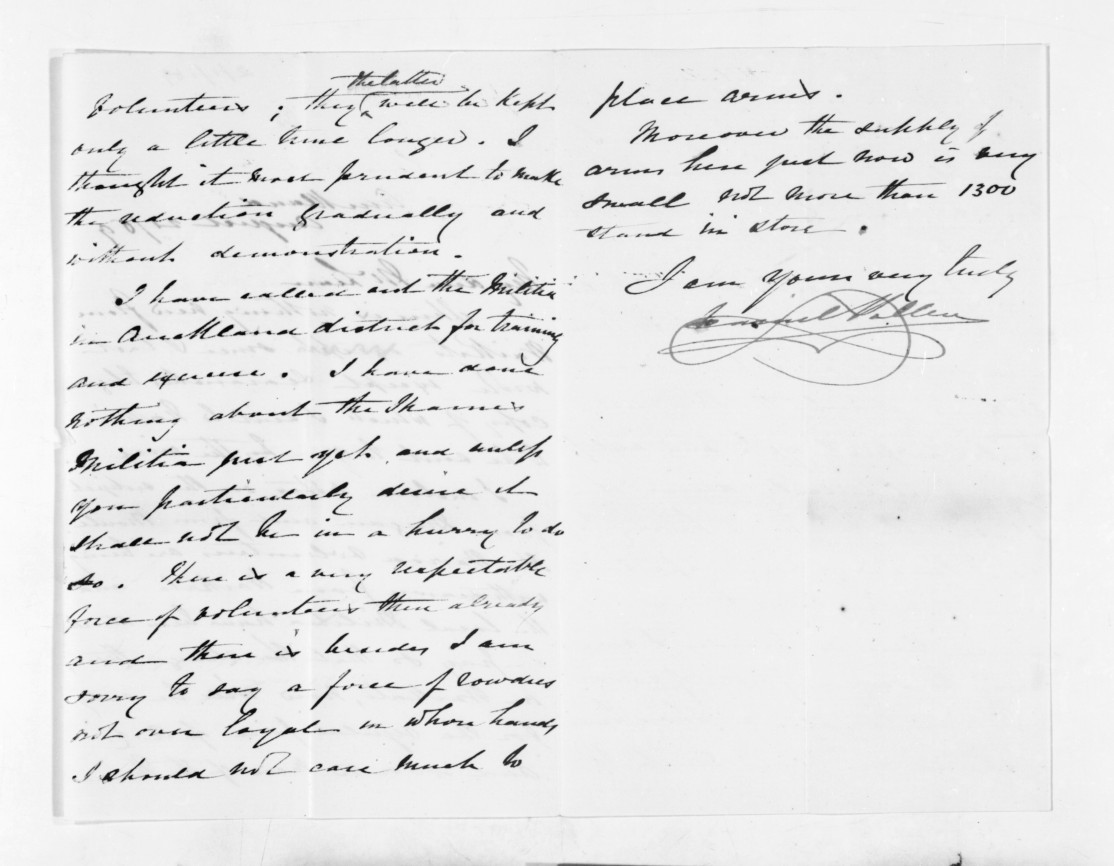 the latter
Volunteers ; they will be kept
only a little time longer. I
thought it most prudent to make
the reduction gradually and
without demonstration.
I have called out the Militia
in Auckland district for training
and exercise. I have done
nothing about the Thames
Militia just yet and unless
you particularly desire it
shall not be in a hurry to do
so. There is a very respectable
force of volunteers there already
and there is besides I am
sorry to say a force of rowdies
not over loyal in whose hands
I should not care much to
place arms.
Moreover the supply of
arms here just now is very
small not more than 1300
stand in store.
I am yours very truly
Daniel Pollen